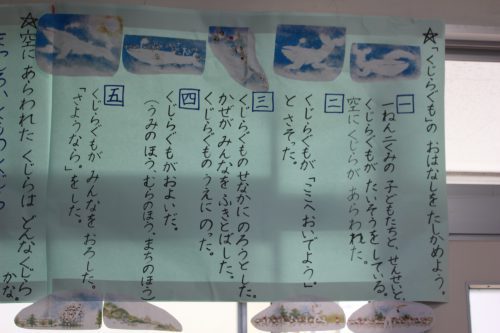 ☆「くじらぐもの おはなしをたしかめよう。
一
一ねん二くみの 子どもたちと、せんせいと、
くじらぐもが たいそうをしている。
空にくじらが あらわれた。
二
くじらぐもが、「ここへおいでよう」
とさそた。
三
くじらぐものせなかにのろうとした。
かぜがみんなを ふきとばした。
くじらぐもの うえにのた。
四
くじらぐもがおよいだ。
(うみのほう、むらのほう、まちのほう)
五
くじらぐもが みんなをおろした。
「さようなら。」をした。
☆空にあらわれた くじらは どんなくじら
かな。